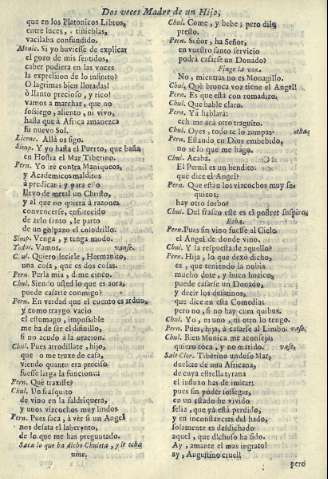 Dos veces Madre de un Hijo,
que en los Platonicos Libros,
entre luces, y tinieblas,
vacilaba confundido.
Si yo huviesse de explicar
el gozo de mis sentidos,
caber pudiera en las voces
la expression de lo infinito?
O lagrimas bien lloradas!
ô llanto precioso, y rico!
vamos a marchar, que no
sosiego, aliento, ni vivo,
hasta que à Africa amanezca
su nuevo Sol.
Allà os sigo.
Y yo hasta el Puerto, que basta
en Hostia el Mar Tiberino.
Pern. Yo ire contra Maniqueos,
y Academicos malditos
à predicar; y para esso
llevo de metal un Christo,
y al que no quiera à razones
convencerse, ofrecido
de zelo santo, le parto
de un golpazo el colodrillo.
Simp. Venga, y tenga modo.
Todos. Vamos. vanse.
Quiero decirle, Hermanito,
una cosa, que es dos cosas.
Pern. Perla mia, y dime cinco.
Chul. Siendo usted lo que es aora,
puede casarse conmigo?
Pern. En verdad que el cuento es arduo,
y como traygo vacio
el estomago, impossible
me ha de ser el distinillo,
si no acudo à la oracion.
Chul. Pues arrodillese, hijo,
que me traxe de casa,
viendo quanto era preciso
fuesse larga la funcion:
Pern. Què traxiste?
Chul. Un frasquito
de vino en la faldriquera,
y unos vizcochos muy lindos
Pern. Pues saca, à vèr si un Angel
nos desata el laberinto,
de lo que me has preguntado.
Saca lo que ha dicho Chuleta, y èl toma
vino.
Chul. Come, y bebe; pero dilo
presto.
Pern. Señor, ha Señor,
en vuestro santo servicio
podrà casarse un Donado?
Finge la voz.
No, mientras no es Monagillo.
Chul. Què bronca voz tiene el Angel!
Pern. Es que està con romadizo.
Chul. Que hable claro.
Pern. Ya hablarà:
echeme acà otro traguito.
Chul. Oyes, todo te lo zampas?
Pern. Estando en Dios embebido,
no sè lo que me hago.
Chul. Acaba.
El Pernil es un bendito.
què dice el Angel?
Pern. Que estàn los vizcochos muy secos;
hay otro sorbo?
Chul. Del frasco este es el postrer suspiro.
Pern. Pues sin vino fuesse al Cielo
el Angel de donde vino.
Chul. Y la respuesta de aquello?
Pern. Hija, lo que dexò dicho,
es, que teniendo la novia
mucho dote, y buen hocico,
puede casarse un Donado,
y decir los desatinos,
que dice en esta Comedias
pero no, si no hay cum quibus.
Chul. Yo, ni uno, ni otro lo tengo.
Pern. Pues, hija, à casarse al Limbo. vase.
Chul. Bien Monica me aconseja:
que no toca, y no marido. vase.
Tiberino undoso Mar,
deidad de una Africana,
de cuya estrella tirana
el influxo has de imitar:
pues sin poder sossegar,
en un estado he vivido
feliz, que yà està perdido,
y en inconstancias del hado,
solamente es desdichado
aquel, que dichoso ha sido.
Ay, amante el mas ingrato!
ay, Augustino cruel!
pero